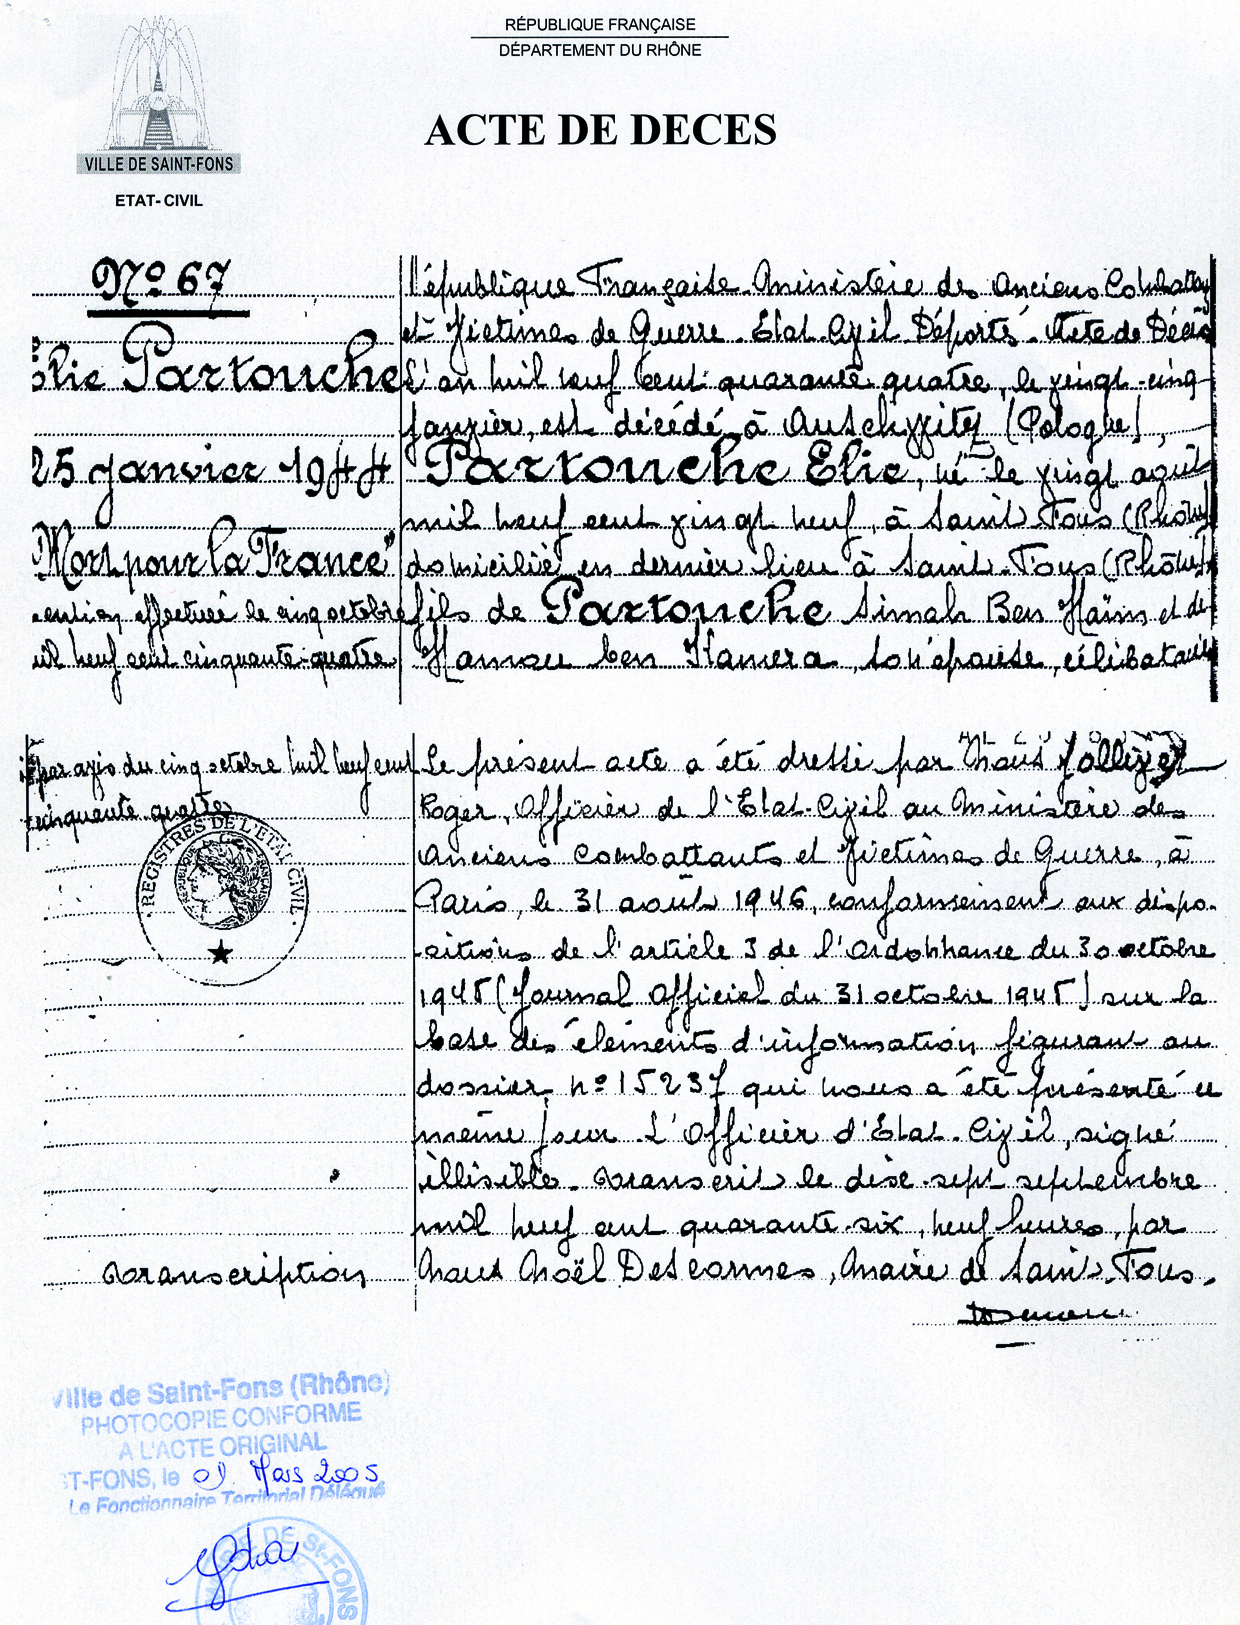 RÉPUBLIQUE FRANÇAISE
DÉPARTEMENT DU RHÔNE
ACTE DE DECES
VILLE DE SAINT-FONS
ETAT-CIVIL
No 67
Elie Partouche
25 janvier 1944
Mort pour la France"
mention effectuée le cinq octobre
mil neuf cent cinquante-quatre
République Française. Ministère des Anciens Combattants
et Victimes de Guerre. Etat-Civil Déportés. Acte de Décès
L'an mil neuf cent quarante quatre, le vingt-cinq
janvier, est décédé à Auschwitz (Pologne),
Partouche Elie, né le vingt août
mil neuf cent vingt neuf, à Saint-Fons (Rhône)
domicilié en dernier lieu à Saint-Fons (Rhône)
fils de Partouche Simah Ben Haïm et de
Hamou ben Kamera, son épouse, célibataire
par avis du cinq octobre mil neuf cent
cinquante quatre
REGISTRES DE L'ETAT CIVIL
Le présent acte a été dressé par Nous
Roger, Officier de l'Etat-Civil au Ministère des
Anciens Combattants et Victimes de Guerre, à
Paris, le 31 août 1946, conformément aux dispo-
sitions de l'article 3 de l'Ordonnance du 30 octobre
1945 (Journal Officiel du 31 octobre 1945) sur la
base des éléments d'information figurant au
dossier n° 15237 qui nous a été présenté ce
même jour. L'Officier d'Etat-Civil, signé
illisible. Transcrit le dix-sept septembre
mil neuf cent quarante-six, neuf heures, par
Nous Noël Descormes, Maire de Saint-Fons.
Transcription
Ville de Saint-Fons (Rhône)
PHOTOCOPIE CONFORME
A L'ACTE ORIGINAL
ST-FONS, le 01 Mars 2005
Le Fonctionnaire Territorial Délégué
DE St-FONS